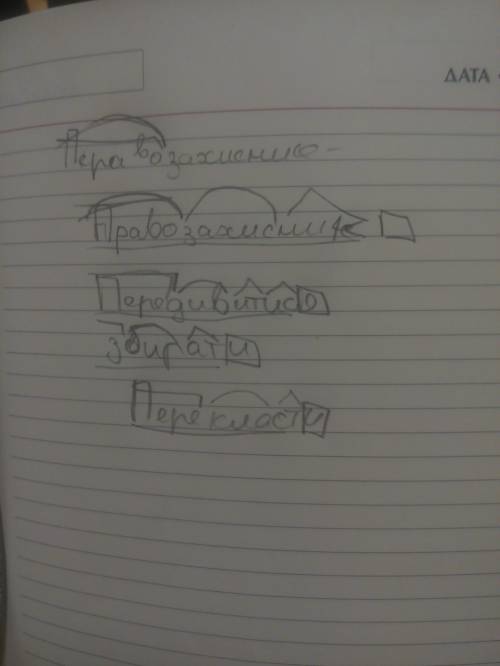 ДАТА
Правозахисник
Передивитися
збирати
Перекласти